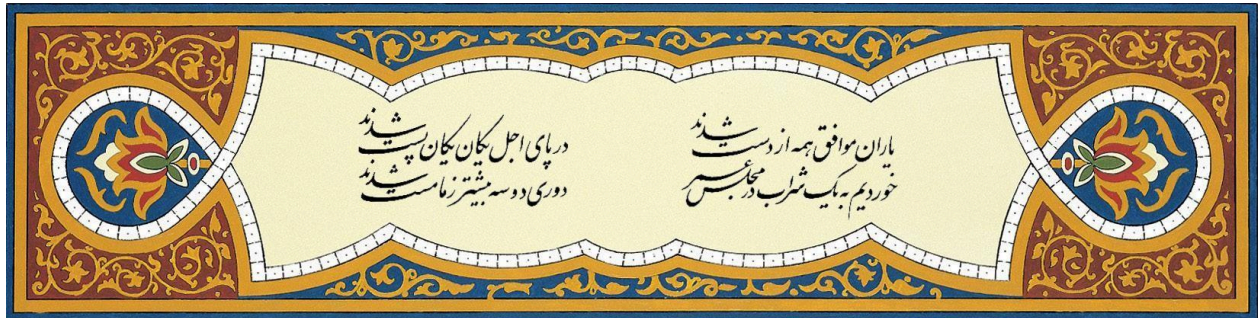 یاران موافق همه از دست شدند
در پای اجل یکان یکان پست شدند
خوردیم به یک شراب در مجلس عمر
دوری دو سه بیشتر ز ما مست شدند